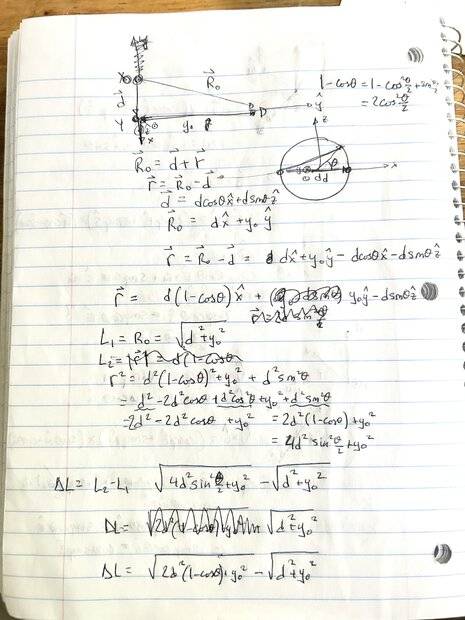 X
R⃗₀
1-cosθ = 1-cos²θ/2 + sin²θ/2
= 2cos²θ/2
d⃗
D
ŷ
Y
y₀
x
z
x
θ
d
R⃗₀ = d⃗ + r⃗
r⃗ = R⃗₀ - d⃗
d⃗ = dcosθx̂ + dsinθẑ
R⃗₀ = dx̂ + y₀ŷ
r⃗ = R⃗₀ - d⃗ = dx̂ + y₀ŷ - dcosθx̂ - dsinθẑ
r⃗ = d(1-cosθ)x̂ + y₀ŷ - dsinθẑ
L₁ = R₀ = √(d² + y₀²)
L₂ = |r⃗| = d(1-cosθ
r² = d²(1-cosθ)² + y₀² + d²sin²θ
= d² - 2d²cosθ + d²cos²θ + y₀² + d²sin²θ
= 2d² - 2d²cosθ + y₀² = 2d²(1-cosθ) + y₀²
= 4d²sin²θ/2 + y₀²
ΔL = L₂ - L₁ √(4d²sin²θ/2 + y₀²) - √(d² + y₀²)
√(d² + y₀²)
ΔL = √(2d²(1-cosθ) + y₀²) - √(d² + y₀²)